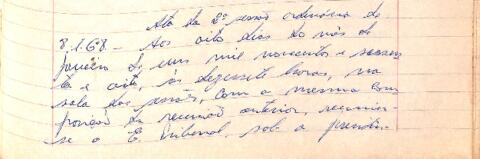 Ata da 2ª sessão ordinária de
8.1.68. - Aos oito dias do mês de
janeiro de um mil novecentos e sessen-
ta e oito, às dezessete horas, na
sala das sessões, com a mesma com
posição da reunião anterior, reuniu-
se o E. Tribunal, sob a presidên-